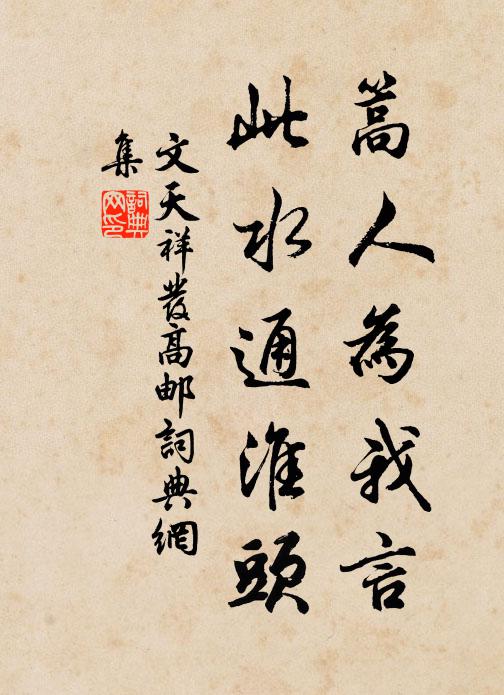 篙人為我言
此水通淮頭
文天祥發高邮詞典網
集
詞典網印